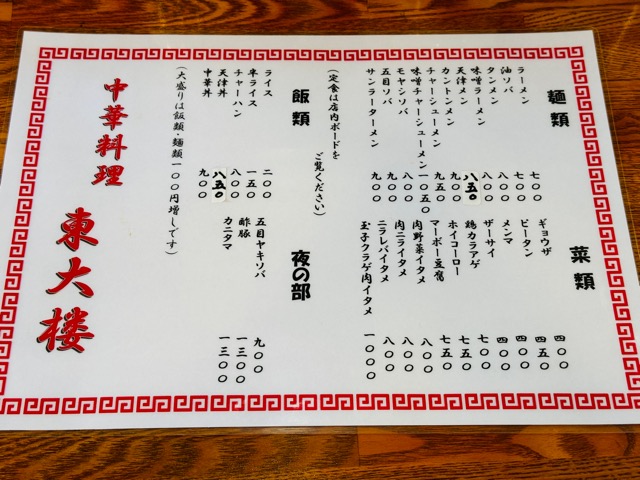 麺類
ラーメン 七〇〇
油ソバ 七〇〇
タンメン 八〇〇
味噌ラーメン 八〇〇
天津メン 八五〇
カントンメン 九〇〇
チャーシューメン 九五〇
味噌チャーシューメン 一〇五〇
モヤシソバ 八〇〇
五目ソバ 九〇〇
サンラーターメン 九〇〇
(定食は店内ボードを
ご覧ください)
飯類
ライス 二〇〇
半ライス 一五〇
チャーハン 八〇〇
天津丼 八五〇
中華丼 九〇〇
(大盛りは飯類・麺類一〇〇円増しです)
菜類
ギョウザ 四〇〇
ピータン 四五〇
メンマ 四〇〇
ザーサイ 四〇〇
鶏カラアゲ 七〇〇
ホイコーロー 七五〇
マーボー豆腐 七五〇
肉野菜イタメ 八〇〇
肉ニライタメ 八〇〇
ニラレバイタメ 八〇〇
玉子クラゲ肉イタメ 一〇〇〇
夜の部
五目ヤキソバ 九〇〇
酢豚 一三〇〇
カニタマ 一三〇〇
中華料理
東大楼